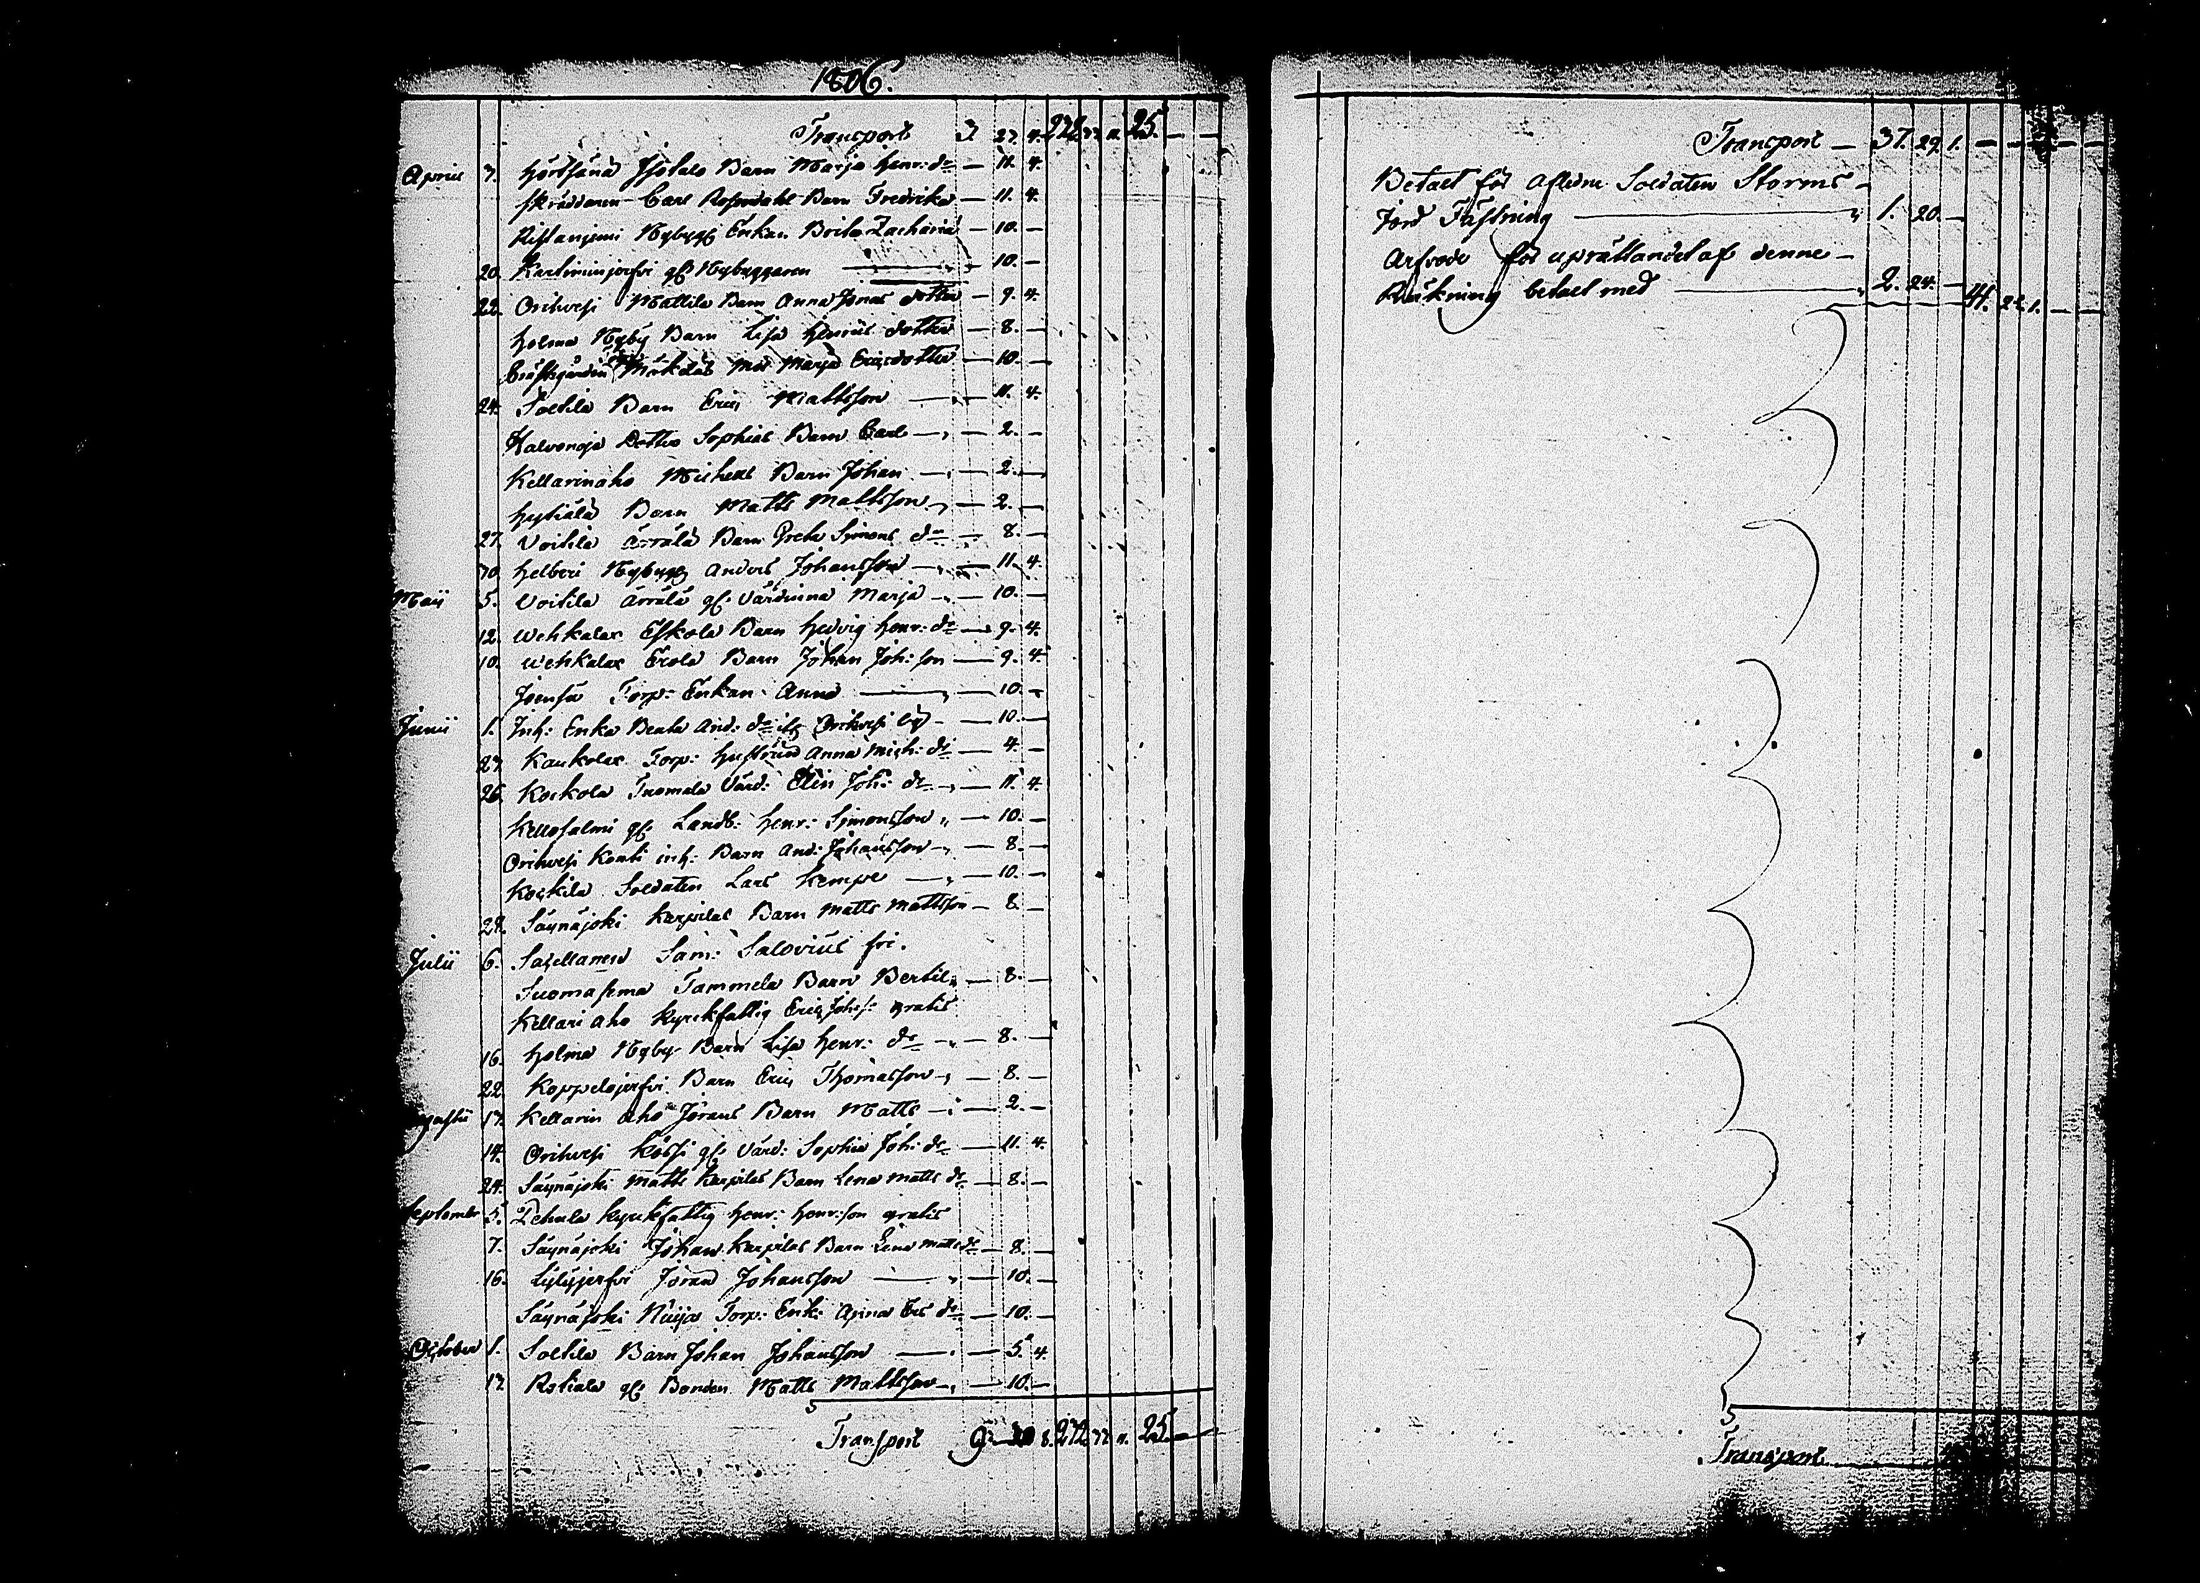 1806.
Transport 3 27. 4. 272 33 11. 25. — —
Aprill 7. Hörtsänä Isotalo Barn Marja Henr: dr — 11. 4.
Skräddaren Carl Rosendahl Barn Fredrika — 11. 4.
Nybygg Enkan Brita Zachariæ — 10. —
20. gl Nybyggaren — 10. —
22. Orihvesi Mattila Barn Anna Jonas dotter — 9. 4.
Holma Nyby Barn Lisa Henrics dotter — 8. —
Marja Ericsdotter — 10. —
24. Soltila Barn Eric Mattsson — 11. 4.
Kalvonoja Dotter Sophias Barn Carl — 2. —
Kellarinaho Michels Barn Johan — 2. —
Hyhiälä Barn Matts Mattsson — 2. —
27. Voitila Arrälä Barn Greta Simons dr — 8. —
30. Nybygg Anders Johansson — 11. 4.
Maii 5. Voitila Arrälä gl: Värdinna Marja — 10. —
12. Wehkalax Eskola Barn Hedvig Henr: dr — 9. 4.
10. Wehkalax Erola Barn Johan Joh: son — 9. 4.
Torp: Enkan Anna — 10. —
Junii 1. Inh: Enka Beata And: dr Orihvesi by — 10. —
27. Torp: Hustrun Anna Mich: dr — 4. —
26. Kockola Tuomala Värd: Elin Joh: dr — 11. 4.
Kellosalmi gl: Landb: Henr: Simonsson — 10. —
Orihvesi Konti inh: Barn And: Johansson — 8. —
Kockila Soldaten Lars Kempe — 10. —
29. Säynäjoki Karpilas Barn Matts Mattsson — 8. —
Julii 6. Sacellanen Sam: Salovius fri.
Suomasema Tammela Barn Bertil — 8. —
Kellari aho Kyrckfattig Eric Johs: gratis
16. Holma Nyby Barn Lisa Henr: dr — 8. —
22. Koppelojerfvi Barn Eric Thomasson — 8. —
17. Kellarin aho Jörans Barn Matts — 2. —
14. Orihvesi Kössi gl: Värd: Sophia Joh: dr — 11. 4.
24. Säynäjoki Matts Karpilas Barn Lena Matts dr — 8. —
September 5. Kyrckfattig Henr: Henr:son gratis
7. Säynäjoki Johan Karpilas Barn Lena Matts dr — 8. —
16. Lylyjerfvi Jöran Johansson — 10. —
Säynäjoki Niuja Torp: Enk: Anna Ers dr — 10. —
October 1. Soltila Barn Johan Johansson — 5. 4.
17. Rotiala gl: Bonden Matts Mattsson — 10. —
Transport 9 — 20 8. 272 33 11. 25. — —
Transport — 37. 29. 1. — — — —
Betalt för Aflidne Soldaten Storms
Jord Fästning — 1. 20. —
Arfvode för uprättandet af denne
Räkning betalt med — 2. 24. — 41. 25. 1. — —
Transport